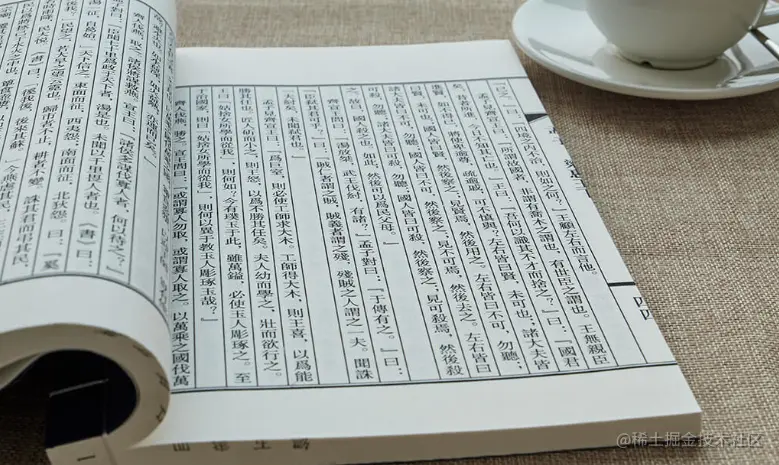 「已之。」曰:「四境之內不治,則如之何?」王顧左右而言他。
孟子見齊宣王曰:「所謂故國者,非謂有喬木之謂也,有世臣之謂也。王無親臣
矣,昔者所進,今日不知其亡也。」王曰:「吾何以識其不才而舍之?」曰:「國君
進賢,如不得已,將使卑踰尊,疏踰戚,可不慎與?左右皆曰賢,未可也;諸大夫皆
曰賢,未可也;國人皆曰賢,然後察之,見賢焉,然後用之。左右皆曰不可,勿聽;
諸大夫皆曰不可,勿聽;國人皆曰不可,然後察之,見不可焉,然後去之。左右皆曰
可殺,勿聽;諸大夫皆曰可殺,勿聽;國人皆曰可殺,然後察之,見可殺焉,然後殺
之。故曰,國人殺之也。如此,然後可以爲民父母。」
齊宣王問曰:「湯放桀,武王伐紂,有諸?」孟子對曰:「于傳有之。」曰:
「臣弒其君可乎?」曰:「賊仁者謂之賊,賊義者謂之殘,殘賊之人謂之一夫。聞誅
一夫紂矣,未聞弒君也。」
孟子見齊宣王曰:「爲巨室,則必使工師求大木。工師得大木,則王喜,以爲能
勝其任也。匠人斲而小之,則王怒,以爲不勝其任矣。夫人幼而學之,壯而欲行之。
王曰『姑舍女所學而從我』,則何如?今有璞玉于此,雖萬鎰,必使玉人彫琢之。至
于治國家,則曰『姑舍女所學而從我』,則何以異于教玉人彫琢玉哉?」
齊人伐燕,勝之。宣王問曰:「或謂寡人勿取,或謂寡人取之。以萬乘之國伐萬
齊人伐燕,取之。諸侯將謀救燕。宣王曰:「諸侯多謀伐寡人者,何以待之?」
孟子對曰:「臣聞七十里爲政于天下者,湯是也。未聞以千里畏人者也。《書》曰:
@稀土掘金技术社区